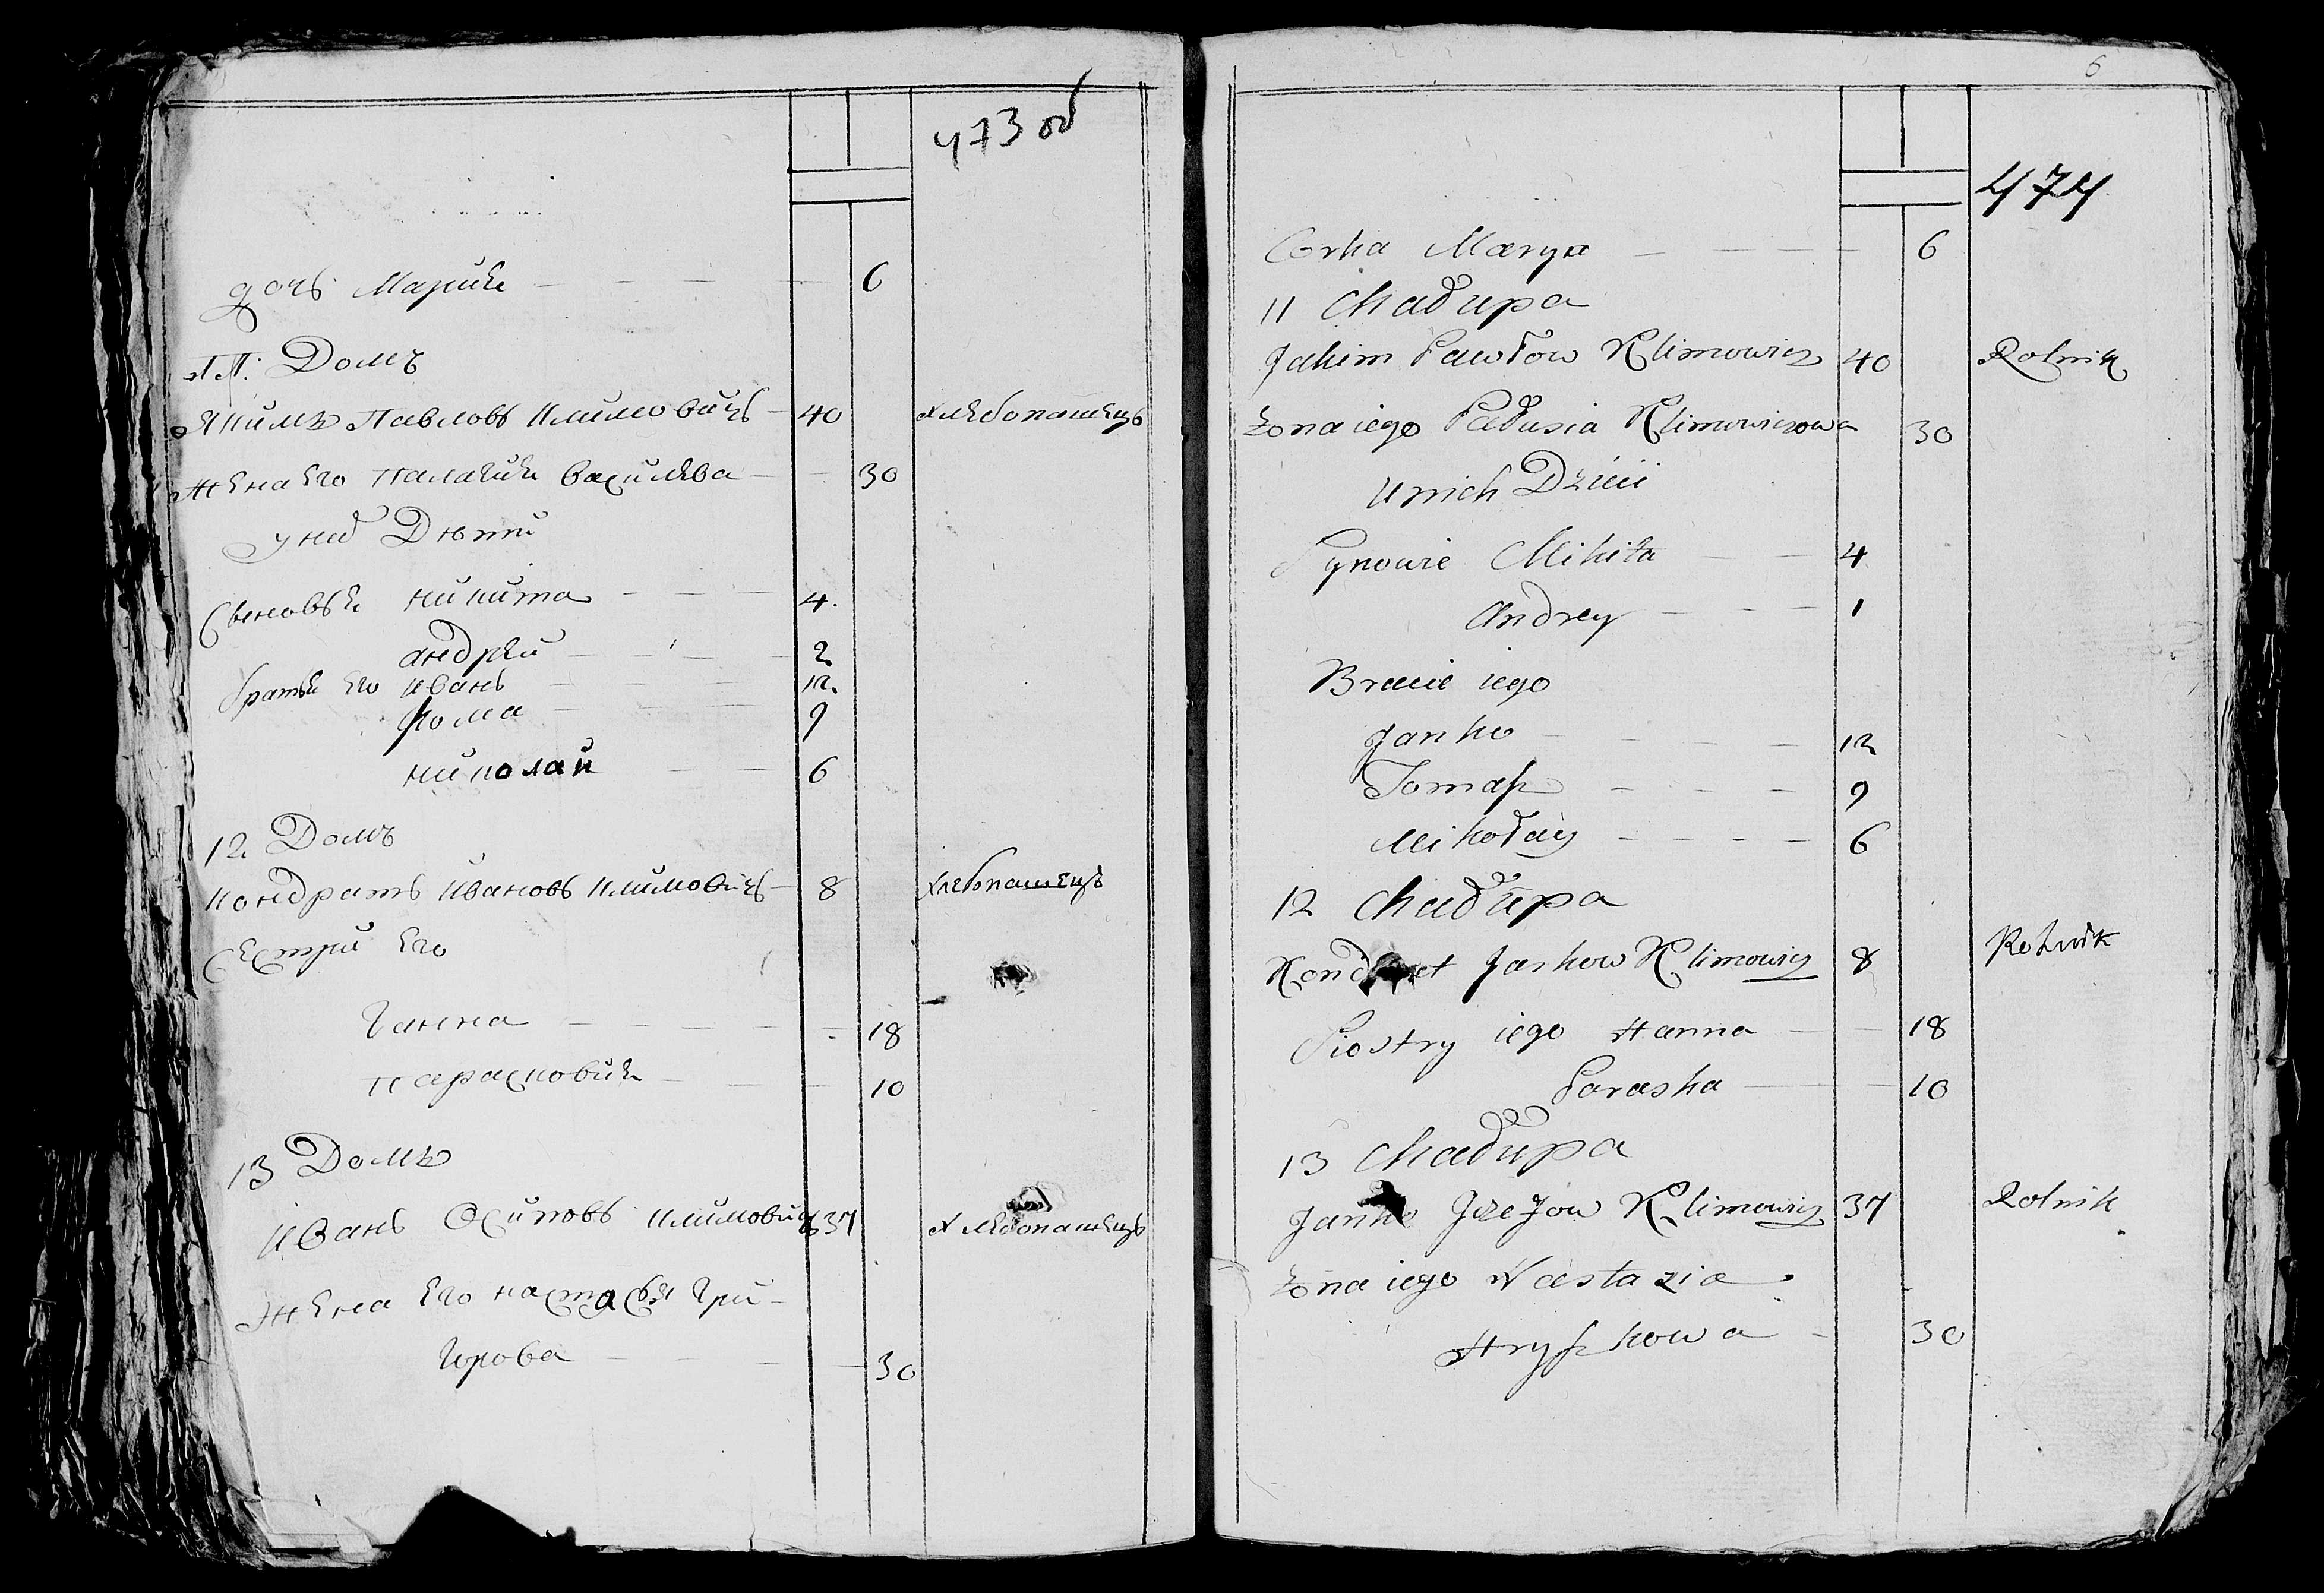 473 об
дочь Мария 6
11. Домъ
Якимъ Павловъ Климовичъ 40 хлебопашецъ
Жена его Палагия Васильева 30
у них Дѣти
Сыновья Никита 4.
андрей 2
братья его Иванъ 12.
Фома 9
Николай 6
12 Домъ
Кондратъ Ивановъ Климовичъ 8 хлебопашецъ
Сестри его
Ганна 18
Парасковия 10
13 Домъ
Иванъ Осиповъ Климовичъ 37 хлебопашецъ
Жена его Настасья Гри-
горова 30
6
474
Corka Marya 6
11 Chałupa
Jakim Pawłow Klimowicz 40 Rolnik
Zona iego Pałusia Klimowiczowa 30
U nich Dzieci
Synowie Mikita 4
Andrey 1
Bracie iego
Janko 12
Tomasz 9
Mikołay 6
12 Chałupa
Kondrat Jaskow Klimowicz 8 Rolnik
Siostry iego Hanna 18
Paraska 10
13 Chałupa
Janko Jzefow Klimowicz 37 Rolnik
Zona iego Nastazia
Hryszkowa 30